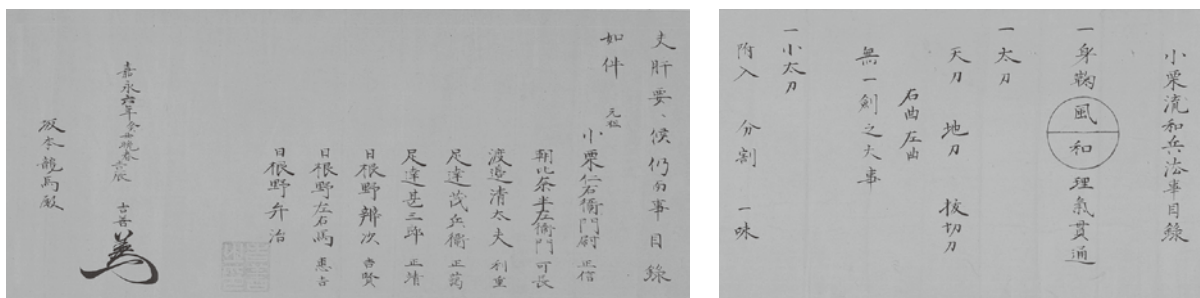 小栗流和兵法事目錄
一身鞠 風和 理氣貫通
一太刀
天刀 地刀 拔切刀
右曲左曲
無一劍之大事
一小太刀
附入 分割 一味
叓肝要、候仍而事目錄
如件
元祖 小栗仁右衛門尉 正信
朝比奈半左衛門 可長
渡邉清太夫 利重
足達茂兵衛 正藹
足達甚三郎 正清
日根野辨次 吉賢
日根野左右馬 惠吉
日根野弁治
嘉永六年癸丑晩春吉辰 吉善
坂本龍馬殿